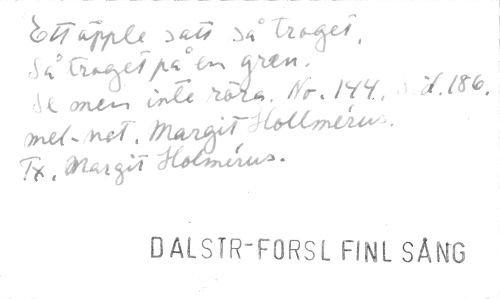 Ett äpple satt så troget,
Så troget på en gren.
Se men inte röra. No. 144, sid. 186.
mel-not. Margit Hollmérus.
Tx. Margit Holmérus.
DALSTR-FORSL FINL SÅNG